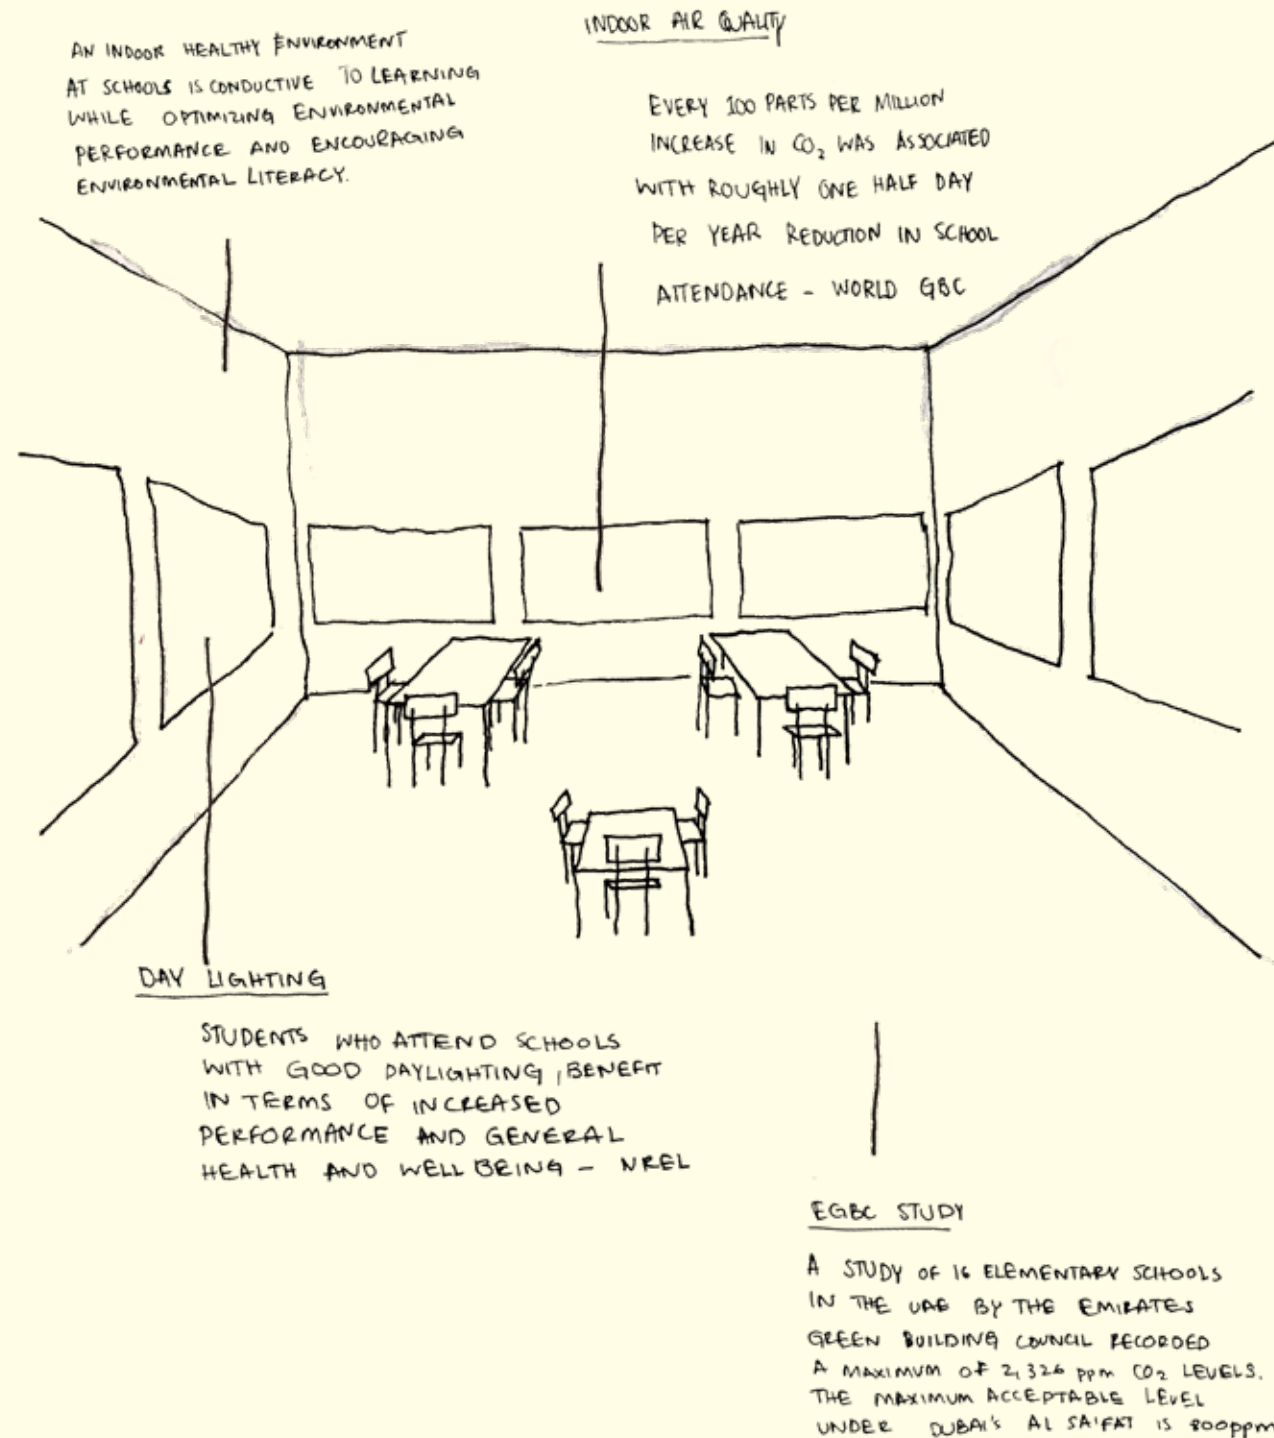 AN INDOOR HEALTHY ENVIRONMENT
AT SCHOOLS IS CONDUCTIVE TO LEARNING
WHILE OPTIMIZING ENVIRONMENTAL
PERFORMANCE AND ENCOURAGING
ENVIRONMENTAL LITERACY.
INDOOR AIR QUALITY
EVERY 100 PARTS PER MILLION
INCREASE IN CO₂ WAS ASSOCIATED
WITH ROUGHLY ONE HALF DAY
PER YEAR REDUCTION IN SCHOOL
ATTENDANCE - WORLD GBC
DAY LIGHTING
STUDENTS WHO ATTEND SCHOOLS
WITH GOOD DAYLIGHTING, BENEFIT
IN TERMS OF INCREASED
PERFORMANCE AND GENERAL
HEALTH AND WELL BEING - NREL
EGBC STUDY
A STUDY OF 16 ELEMENTARY SCHOOLS
IN THE UAE BY THE EMIRATES
GREEN BUILDING COUNCIL RECORDED
A MAXIMUM OF 2,326 ppm CO₂ LEVELS.
THE MAXIMUM ACCEPTABLE LEVEL
UNDER DUBAI'S AL SA'FAT IS 800ppm